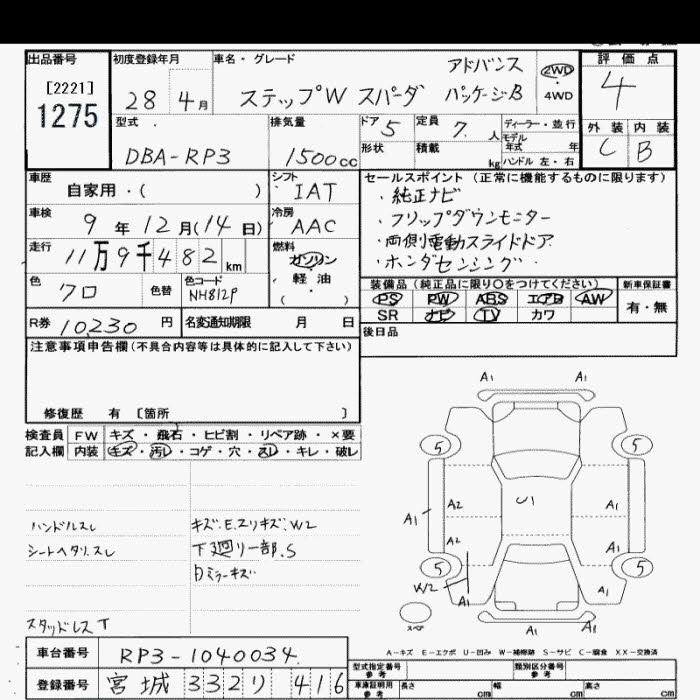 出品番号 初度登録年月 車名・グレード 評価点
[2221]
1275
28 4月 ステップW スパーダ アドバンス パッケージB 2WD ・ 4WD 4
型式 排気量 ドア 5 定員 7. 人 ディーラー・並行 外装 内装
モデル年式 年 C B
DBA-RP3 1500cc 形状 積載 kg ハンドル 左・右
車歴 シフト セールスポイント (正常に機能するものに限ります)
自家用・( ) IAT
・純正ナビ
車検 9年 12月(14日) 冷房 AAC
・フリップダウンモニター
走行 11万9千482km 燃料 ガソリン・軽油・( )
・両側電動スライドドア
・ホンダセンシング
色 クロ 色替 色コード NH812P
装備品 (純正品に限り○をつけてください) 新車保証書
PS PW ABS エアB AW 有・無
SR ナビ TV カワ
R券 10,230円 名変通知期限 月 日
後日品
注意事項申告欄(不具合内容等は具体的に記入して下さい)
修復歴 有 [箇所 ]
検査員 FW キズ・飛石・ヒビ割・リペア跡・×要
記入欄 内装 キズ・汚レ・コゲ・穴・スレ・キレ・破レ
A1 A1
5 5
A1 A2 U1 A1
A2 A1
5 5
W2 A1 A1
スペア A1 A1
ハンドルスレ キズ.E.スリキズ.W2
シートヘタリ.スレ 下廻り一部.S
ミラーキズ
スタッドレスT
A-キズ E-エクボ U-凹み W-補修跡 S-サビ C-腐食 XX-交換済
車台番号 RP3-1040034
型式指定番号 参考 類別区分番号 参考
登録番号 宮城 332 リ 416
車庫証明用 参考 長さ cm 幅 cm 高さ cm